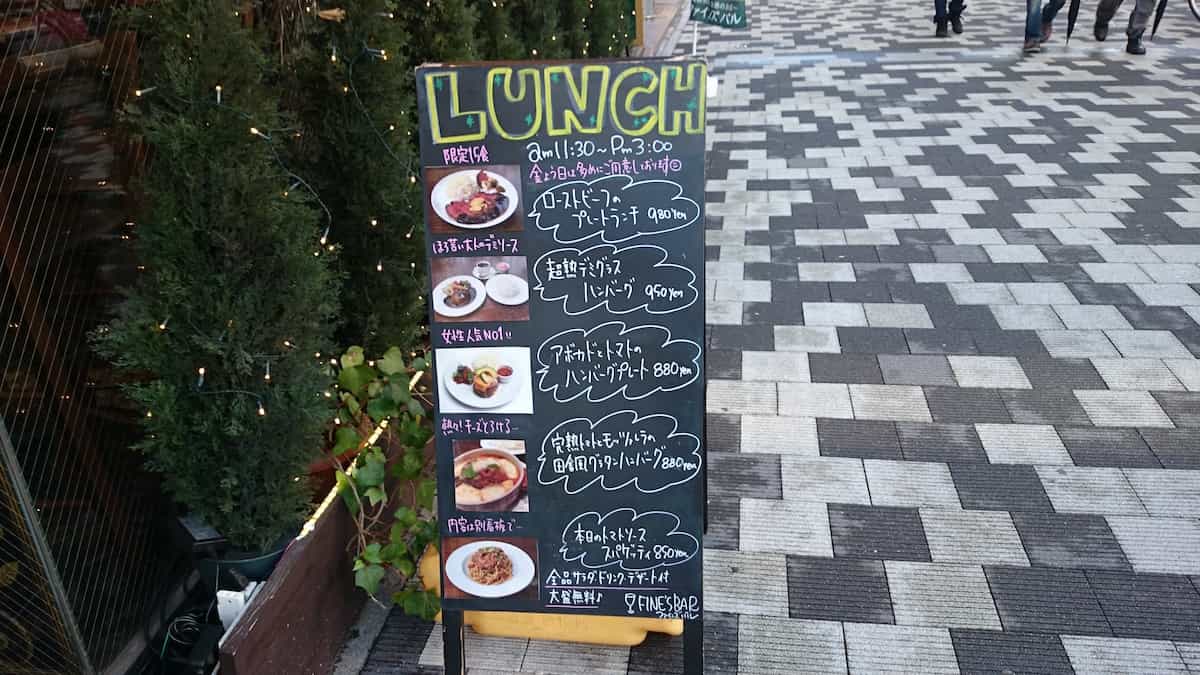 LUNCH
am11:30~Pm3:00
限定15食
金よう日は多めにご用意しております
ローストビーフの
プレートランチ 980yen
ほろ苦い大人のデミソース
超熟デミグラス
ハンバーグ 950yen
女性人気NO1!!
アボカドとトマトの
ハンバーグプレート 880yen
熱々!チーズとろける…
完熟トマトとモッツァレラの
田舎風グラタンハンバーグ 880yen
内容は別看板で…
本日のトマトソース
スパゲッティ 850yen
全品サラダ・ドリンク・デザート付
大盛無料♪
FINE'S BAR
ファインズバル